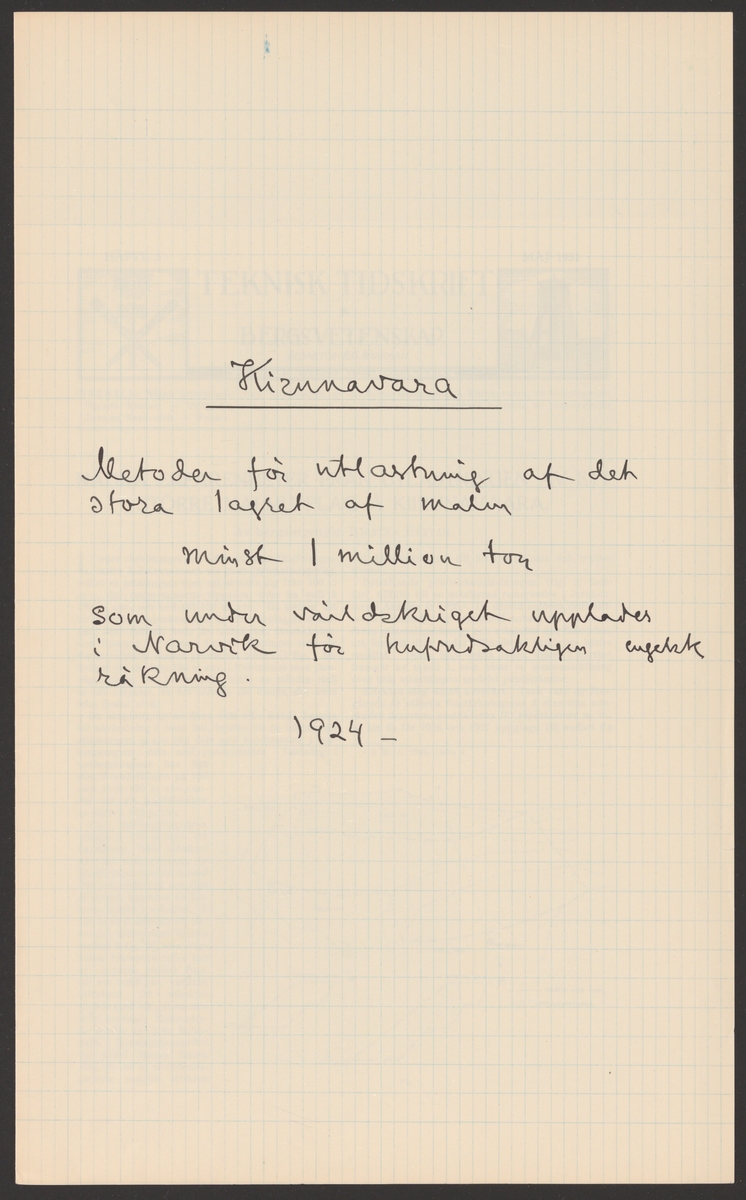 Kirunavara
Metoder för utlastning af det
stora lagret af malm
minst 1 million ton
som under världskriget upplades
i Narvik för hufvudsakligen engelsk
räkning.
1924 –
TEKNISK TIDSKRIFT
BERGSVETENSKAP